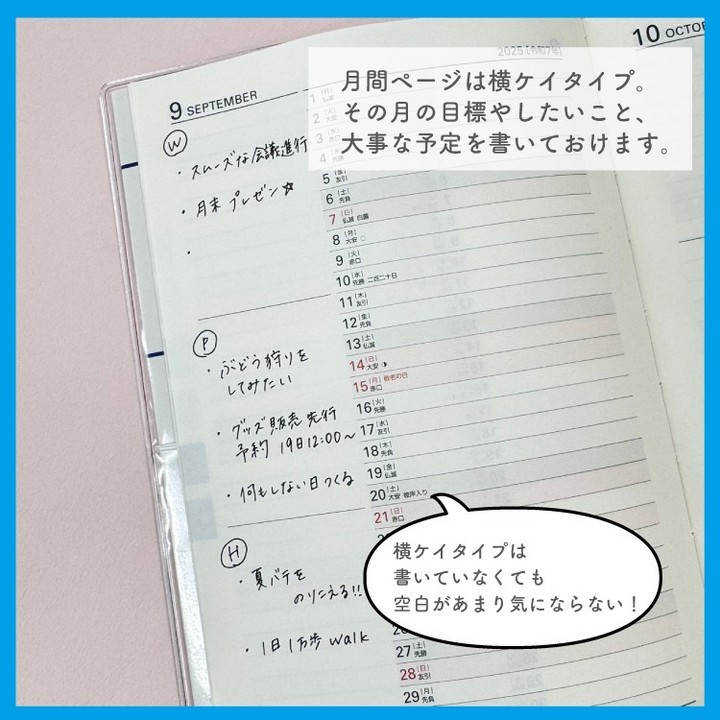 月間ページは横ケイタイプ。
その月の目標やしたいこと、
大事な予定を書いておけます。
2025 [令和7年]
10 OCTO
9 SEPTEMBER
W
・スムーズな会議進行
・月末 プレゼン☆
・
P
・ぶどう狩りを
してみたい
・グッズ販売 先行
予約 19日12:00〜
・何もしない日つくる
H
・夏バテを
のりこえる!!
・1日1万歩 walk
1 (月) 仏滅
2 (火) 大安
3 (水)
4 (木)
5 (金) 友引
6 (土) 先負
7 (日) 仏滅 白露
8 (月) 大安 ○
9 (火) 赤口
10 (水) 先勝 二百二十日
11 (木) 友引
12 (金) 先負
13 (土) 仏滅
14 (日) 大安 ◑
15 (月) 敬老の日 赤口
16 (火) 先勝
17 (水) 友引
18 (木) 先負
19 (金) 仏滅
20 (土) 大安 彼岸入り
21 (日) 赤口
27 (土) 先勝
28 (日) 友引
29 (月) 先負
横ケイタイプは
書いていなくても
空白があまり気にならない！